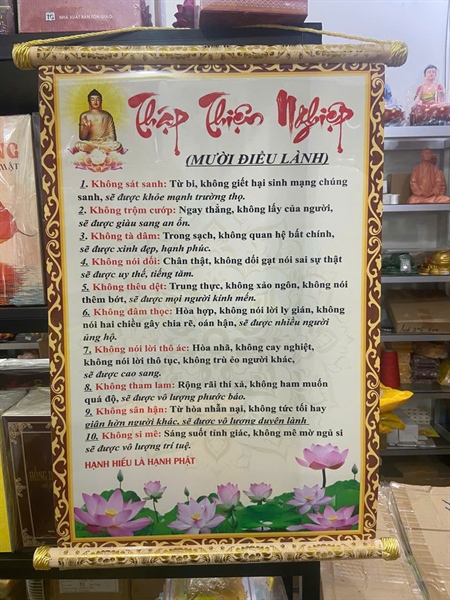 NHÀ XUẤT BẢN TÔN GIÁO
Thập Thiện Nghiệp
(MƯỜI ĐIỀU LÀNH)
1. Không sát sanh: Từ bi, không giết hại sinh mạng chúng
sanh, sẽ được khỏe mạnh trường thọ.
2. Không trộm cướp: Ngay thẳng, không lấy của người,
sẽ được giàu sang an ổn.
3. Không tà dâm: Trong sạch, không quan hệ bất chính,
sẽ được xinh đẹp, hạnh phúc.
4. Không nói dối: Chân thật, không dối gạt nói sai sự thật
sẽ được uy thế, tiếng tăm.
5. Không thêu dệt: Trung thực, không xảo ngôn, không nói
thêm bớt, sẽ được mọi người kính mến.
6. Không đâm thọc: Hòa hợp, không nói lời ly gián, không
nói hai chiều gây chia rẽ, oán hận, sẽ được nhiều người
ủng hộ.
7. Không nói lời thô ác: Hòa nhã, không cay nghiệt,
không nói lời thô tục, không trù ẻo người khác,
sẽ được cao sang.
8. Không tham lam: Rộng rãi thí xả, không ham muốn
quá độ, sẽ được vô lượng phước báo.
9. Không sân hận: Từ hòa nhẫn nại, không tức tối hay
giận hờn người khác, sẽ được vô lượng duyên lành
10. Không si mê: Sáng suốt tỉnh giác, không mê mờ ngủ si
sẽ được vô lượng trí tuệ.
HẠNH HIẾU LÀ HẠNH PHẬT